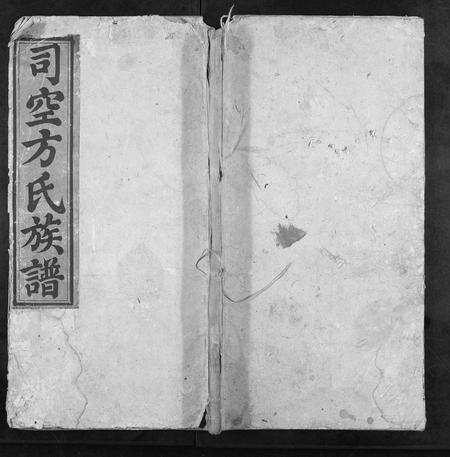 司空方氏族譜